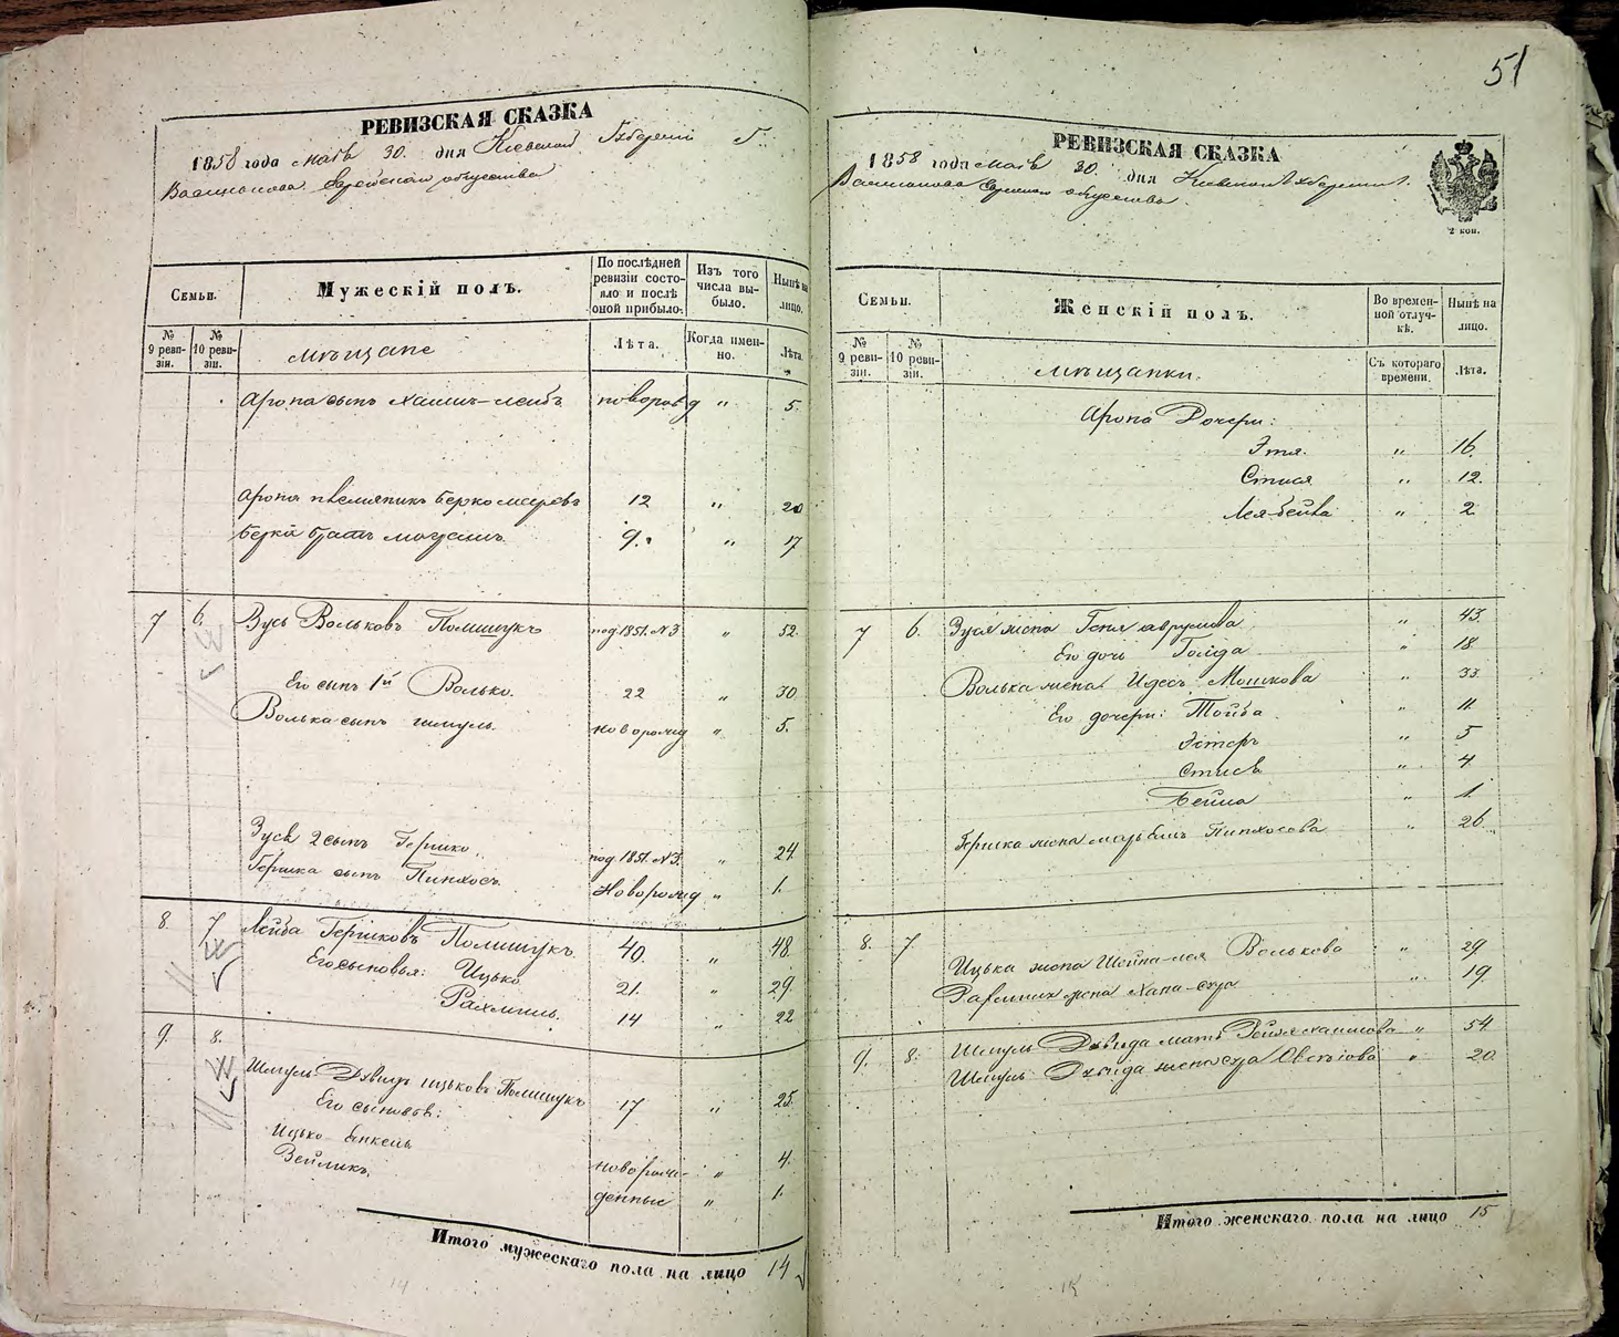 51
РЕВИЗСКАЯ СКАЗКА
1858 года Маія 30. дня Кіевской Губерніи Г.
Еврейскаго общества
Семьи.
Мужескій полъ.
По послѣдней ревизіи состояло и послѣ оной прибыло.
Изъ того числа выбыло.
Нынѣ на лицо.
№ 9 ревизіи.
№ 10 ревизіи.
Мѣщане
Лѣта.
Когда именно.
Лѣта.
Арона сынъ Хаимъ-Лейбъ новорожд " 5.
Арона племяникъ Берко Мееровъ 12 " 20
Берки братъ 9. " 17
7 6. Зусь Вольковъ Полищукъ под. 1851. № 3 " 52.
Его сынъ 1й Волько. 22 " 30
Волька сынъ Шмуль. новорожд " 5.
Зуся 2 сынъ Гершко. под. 1851. № 3. " 24
Гершка сынъ Пинхосъ. Новорожд " 1.
8. 7 Лейба Гершковъ Полищукъ. 40. " 48.
Его сыновья: Ицько 21. " 29.
Рахмиль. 14 " 22
9. 8. Шмуль Давидъ Ицьковъ Полищукъ 17 " 25.
Его сыновья:
Ицько Янкель новорож- " 4.
Вейликъ денные " 1.
Итого мужескаго пола на лицо 14
14
РЕВИЗСКАЯ СКАЗКА
1858 года Маія 30. дня Кіевской Губерніи Г.
Еврейскаго общества.
2 коп.
Семьи.
Женскій полъ.
Во временной отлучкѣ.
Нынѣ на лицо.
№ 9 ревизіи.
№ 10 ревизіи.
Мѣщанки.
Съ котораго времени.
Лѣта.
Арона Дочери:
Этя. " 16.
Стися " 12.
Лея-Бейла " 2
7 6. Зуся жена Геня Аврумова " 43.
Его дочь Голда " 18
Волька жена Идесъ Мошкова " 33.
Его дочери: Тойба " 11
Эстеръ " 5
Стися " 4
Бейла " 1.
Гершка жена Пинхосова " 26.
8. 7 Ицька жена Шейна-Лея Волькова " 29.
Рахмиля жена Хана-Сура " 19.
9. 8. Шмуль Давида мать Рейзя Хаимова " 54
Шмуль Давида жена Сура " 20.
Итого женскаго пола на лицо 15
15